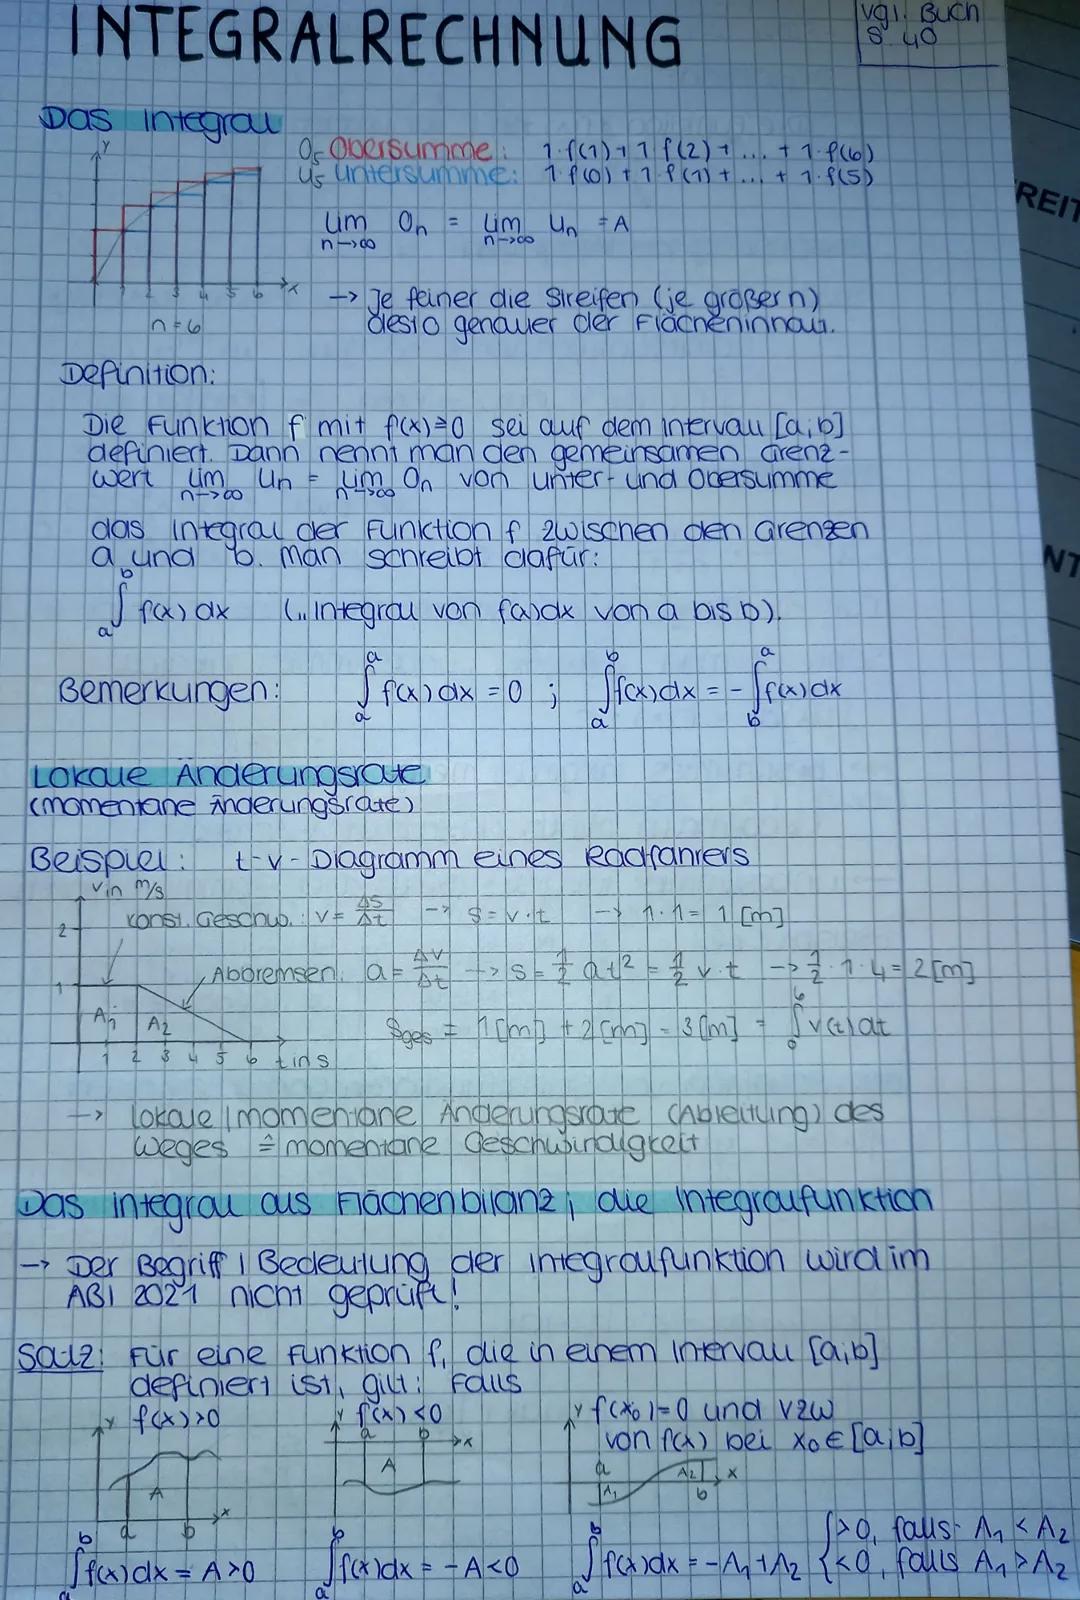 INTEGRALRECHNUNG
vgl. Buch
S. 40
Das Integral
O₅ Obersumme: 1·f(1)+1 f(2)+...+1·f(6)
U₅ Untersumme: 1·f(0)+1·f(1)+...+1·f(5)
lim n→∞ On = lim n→∞ Un = A
→ Je feiner die Streifen (je größer n)
desto genauer der Flächeninhalt.
y
1 2 3 4 5 6 x
n=6
Definition:
Die Funktion f mit f(x)≥0 sei auf dem Intervall [a;b]
definiert. Dann nennt man den gemeinsamen Grenz-
wert lim n→∞ Un = lim n→∞ On von Unter- und Obersumme
das Integral der Funktion f zwischen den Grenzen
a und b. Man schreibt dafür:
∫ₐᵇ f(x) dx („Integral von f(x)dx von a bis b).
Bemerkungen: ∫ₐᵃ f(x) dx = 0 ; ∫ₐᵇ f(x) dx = - ∫ᵇᵃ f(x) dx
Lokale Änderungsrate
(momentane Änderungsrate)
Beispiel: t-v-Diagramm eines Radfahrers
v in m/s
konst. Geschw.: v= Δs/Δt → s=v·t → 1·1= 1 [m]
2
Abbremsen: a= Δv/Δt → s= 1/2 at² = 1/2 v·t → 1/2·1·4=2[m]
1
A₁ A2
sges = 1[m] + 2[m] = 3[m] = ∫₀⁶ v(t) dt
1 2 3 4 5 6 t in s
→ lokale/momentane Änderungsrate (Ableitung) des
Weges ≙ momentane Geschwindigkeit
Das Integral als Flächenbilanz; die Integralfunktion
→ Der Begriff / Bedeutung der Integralfunktion wird im
ABI 2021 nicht geprüft!
Satz: Für eine Funktion f, die in einem Intervall [a;b]
definiert ist, gilt: Falls
y f(x)>0
y f(x)<0
y f(x₀)=0 und VZW
von f(x) bei x₀∈[a;b]
A a b x
a b x A
a A₁ A₂ b x
∫ₐᵇ f(x)dx = A>0
∫ₐᵇ f(x)dx = -A<0
∫ₐᵇ f(x)dx = -A₁+A₂ { >0, falls A₁<A₂
<0, falls A₁>A₂
REIT
NT